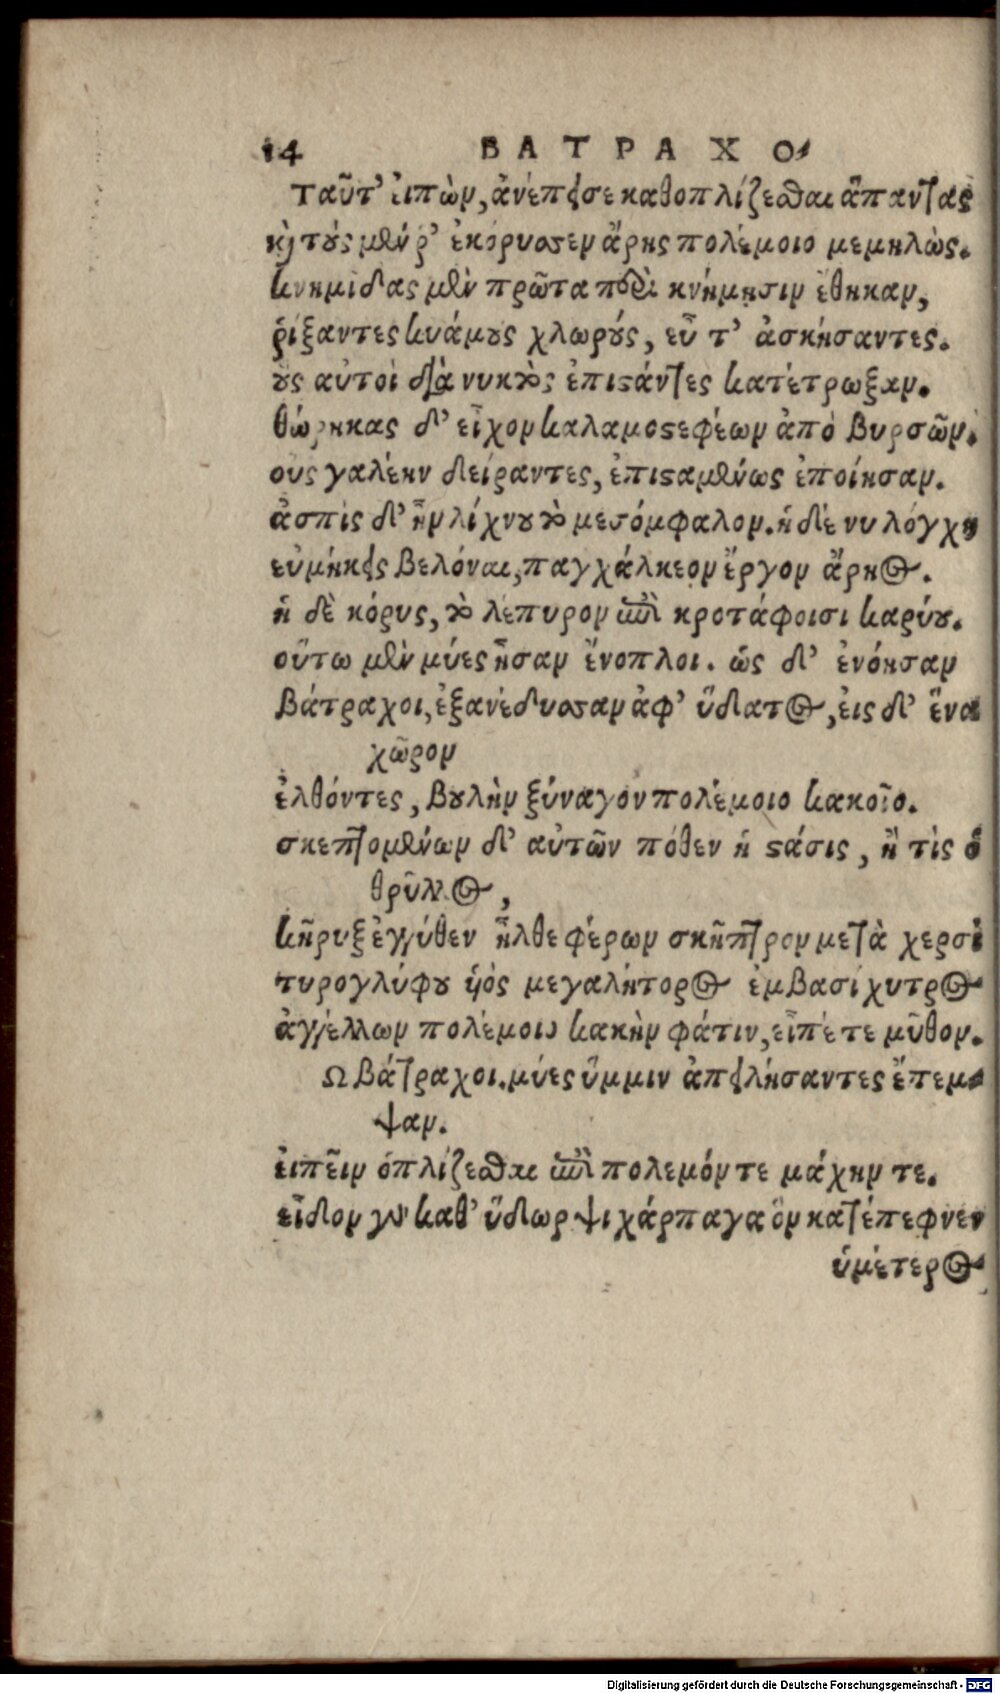 14 ΒΑΤΡΑΧΟ-
Ταῦτ' εἰπὼν, ἀνέπεισε καθοπλίζεσθαι ἅπαντας
καὶ τούς μέν ῥ' ἐκόρυσσεν ἄρης πολέμοιο μεμηλώς.
κνημίδας μὲν πρῶτα περὶ κνήμῃσιν ἔθηκαν,
ῥίξαντες κυάμους χλωρούς, εὖ τ' ἀσκήσαντες.
οὓς αὐτοὶ διὰ νυκτὸς ἐπιστάντες κατέτρωξαν.
θώρηκας δ' εἶχον καλαμοστεφέων ἀπὸ βυρσῶν.
οὓς γαλέην δείραντες, ἐπισταμένως ἐποίησαν.
ἀσπὶς δ' ἦν λίχνου τὸ μεσόμφαλον. ἡ δέ νυ λόγχη
εὐμήκεις βελόναι, παγχάλκεον ἔργον ἄρηος.
ἡ δὲ κόρυς, τὸ λέπυρον ἐπὶ κροτάφοισι καρύου.
οὕτω μὲν μύες ἦσαν ἔνοπλοι. ὡς δ' ἐνόησαν
βάτραχοι, ἐξανέδυσσαν ἀφ' ὕδατος, εἰς δ' ἕνα
χῶρον
ἐλθόντες, βουλὴν ξύναγον πολέμοιο κακοῖο.
σκεπτομένων δ' αὐτῶν πόθεν ἡ στάσις, ἢ τὶς ὁ
θρῦλλος,
κῆρυξ ἐγγύθεν ἦλθε φέρων σκῆπτρον μετὰ χερσὶ
τυρογλύφου υἱὸς μεγαλήτορος ἐμβασίχυτρος
ἀγγέλλων πολέμοιο κακὴν φάτιν, εἶπέ τε μῦθον.
Ω βάτραχοι. μύες ὔμμιν ἀπειλήσαντες ἔπεμ-
ψαν.
εἰπεῖν ὁπλίζεσθαι ἐπὶ πολεμόν τε μάχην τε.
εἶδον γὰρ καθ' ὕδωρ ψιχάρπαγα ὃν κατέπεφνεν
ὑμέτερος
Digitalisierung gefördert durch die Deutsche Forschungsgemeinschaft - DFG